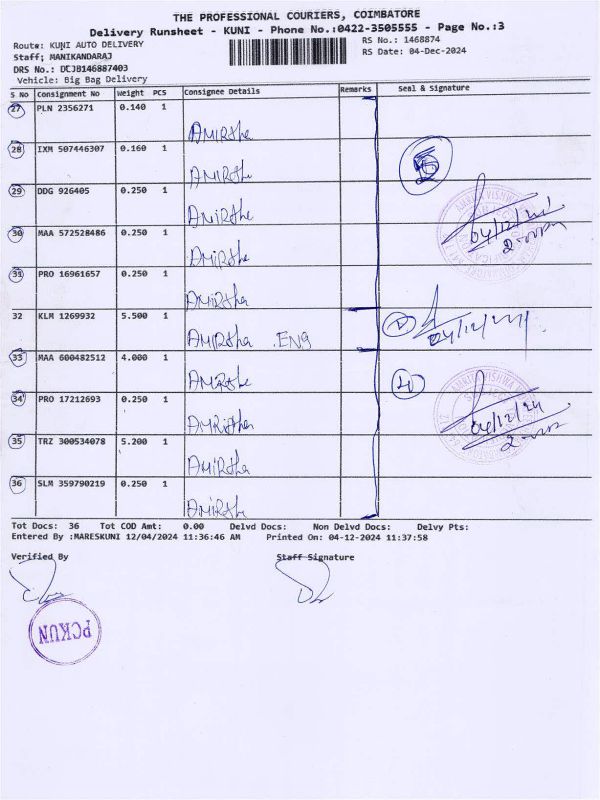 THE PROFESSIONAL COURIERS, COIMBATORE
Delivery Runsheet - KUNI - Phone No.:0422-3505555 - Page No.:3
Route: KUNI AUTO DELIVERY
RS No.: 1468874
Staff: MANIKANDARAJ
RS Date: 04-Dec-2024
DRS No.: DCJB146887403
Vehicle: Big Bag Delivery
S No Consignment No Weight PCS Consignee Details Remarks Seal & Signature
27 PLN 2356271 0.140 1
AMIRtha
28 IXM 507446307 0.160 1
AMIRtha
29 DDG 926405 0.250 1
AMIRtha
30 MAA 572528486 0.250 1
AMIRtha
04/12/24
31 PRO 16961657 0.250 1
AMIRtha
32 KLM 1269932 5.500 1
AMIRtha .ENG
04/12/24
33 MAA 600482512 4.000 1
AMIRtha
34 PRO 17212693 0.250 1
AMIRtha
04/12/24
35 TRZ 300534078 5.200 1
AMIRtha
36 SLM 359790219 0.250 1
AMIRtha
Tot Docs: 36 Tot COD Amt: 0.00 Delvd Docs: Non Delvd Docs: Delvy Pts:
Entered By :MARESKUNI 12/04/2024 11:36:46 AM Printed On: 04-12-2024 11:37:58
Verified By Staff Signature
PCKUN